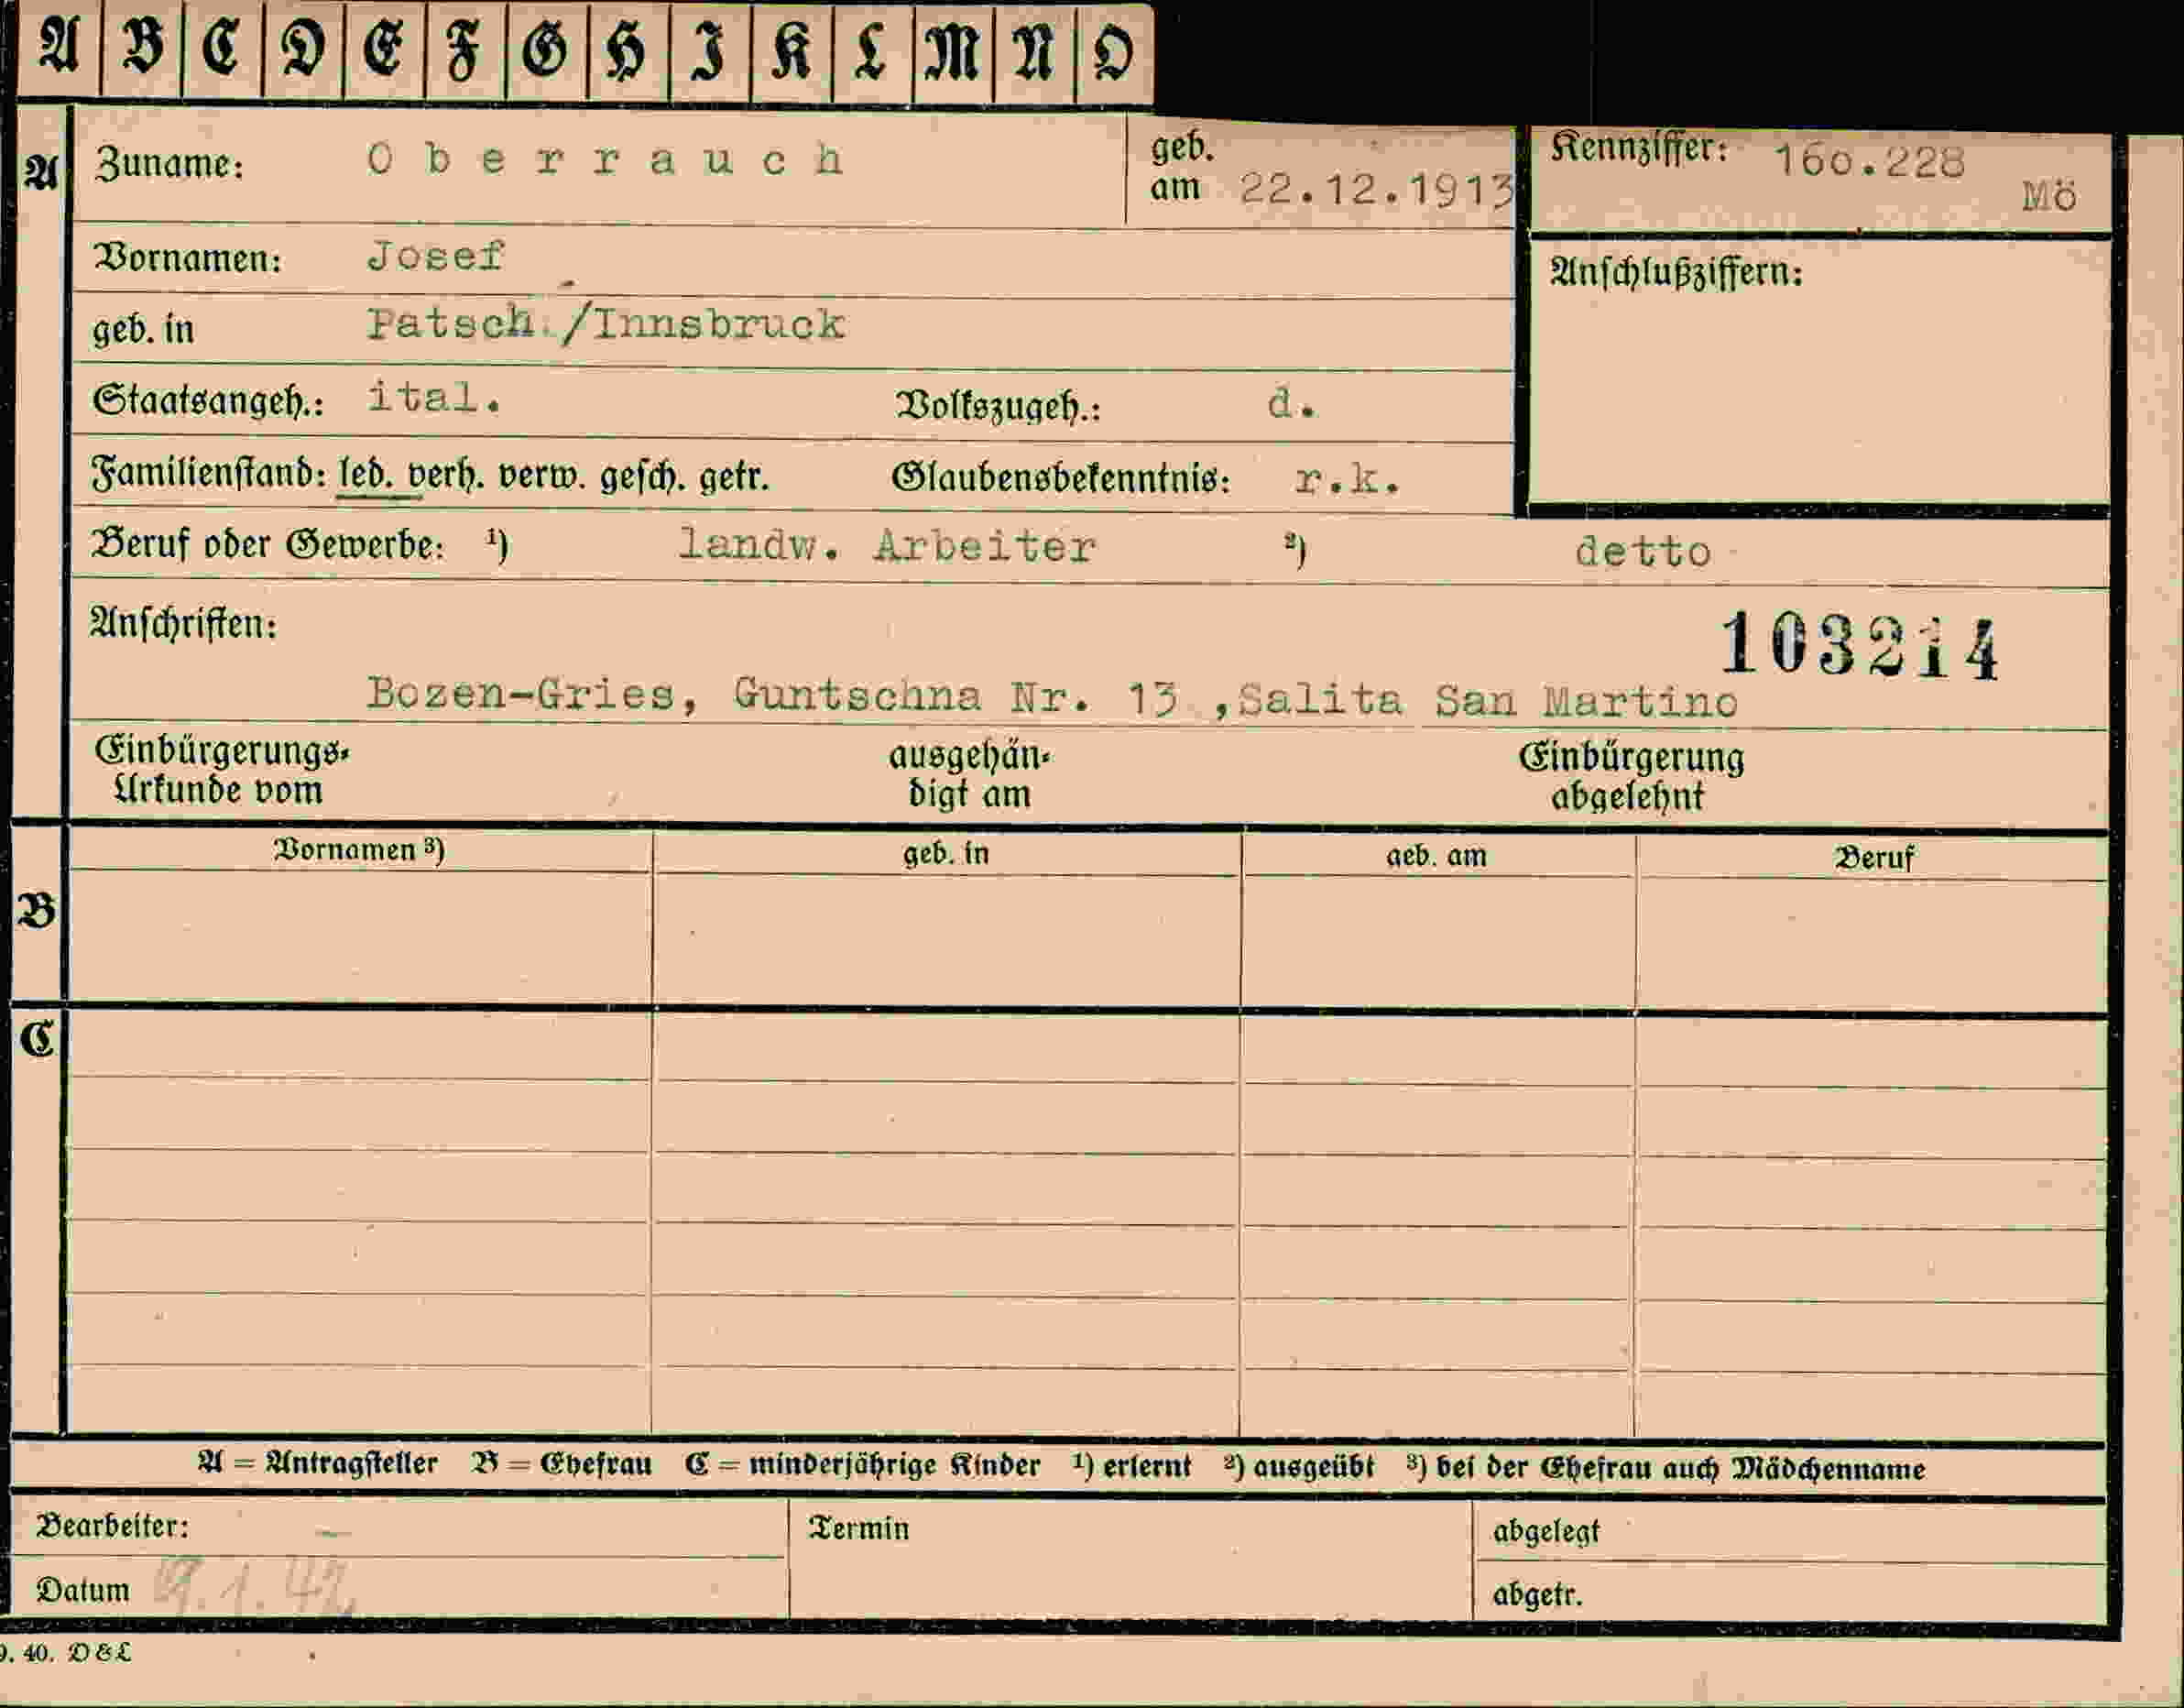 A B C D E F G H I K L M N O
A Zuname: Oberrauch geb. am 22.12.1913 Kennziffer: 160.228 Mö
Vornamen: Josef Anschlußziffern:
geb. in Patsch /Innsbruck
Staatsangeh.: ital. Volkszugeh.: d.
Familienstand: led. verh. verw. gesch. getr. Glaubensbekenntnis: r.k.
Beruf oder Gewerbe: ¹) landw. Arbeiter ²) detto
Anschriften: 103214
Bozen-Gries, Guntschna Nr. 13 ,Salita San Martino
Einbürgerungs- ausgehän- Einbürgerung
Urkunde vom digt am abgelehnt
Vornamen ³) geb. in geb. am Beruf
B
C
A = Antragsteller B = Ehefrau C = minderjährige Kinder ¹) erlernt ²) ausgeübt ³) bei der Ehefrau auch Mädchenname
Bearbeiter: Termin abgelegt
Datum 9.1.42 abgetr.
9. 40. D&L